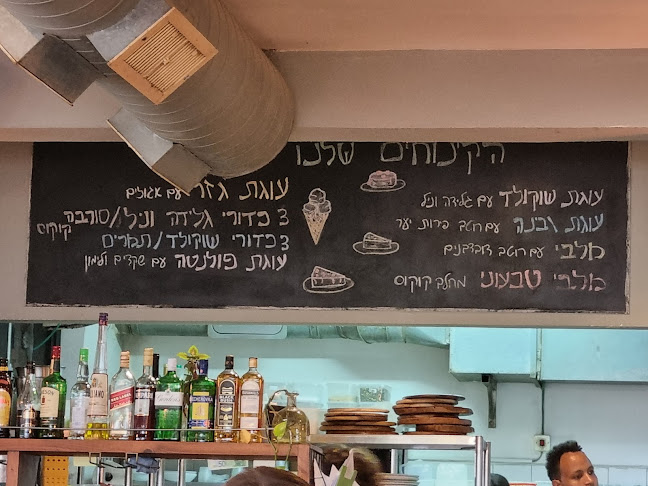 הקינוחים שלנו
עוגת שוקולד עם גלידה וניל
עוגת גבנה עם רוטב פרות יער
מלבי עם רוטב דובדבנים
מלבי טבעוני מחלב קוקוס
עוגת גזר עם אגוזים
3 כדורי גלידה וניל/סורבה קוקוס
3 כדורי שוקולד/תמרים
עוגת פולנטה עם שקדים ולימון